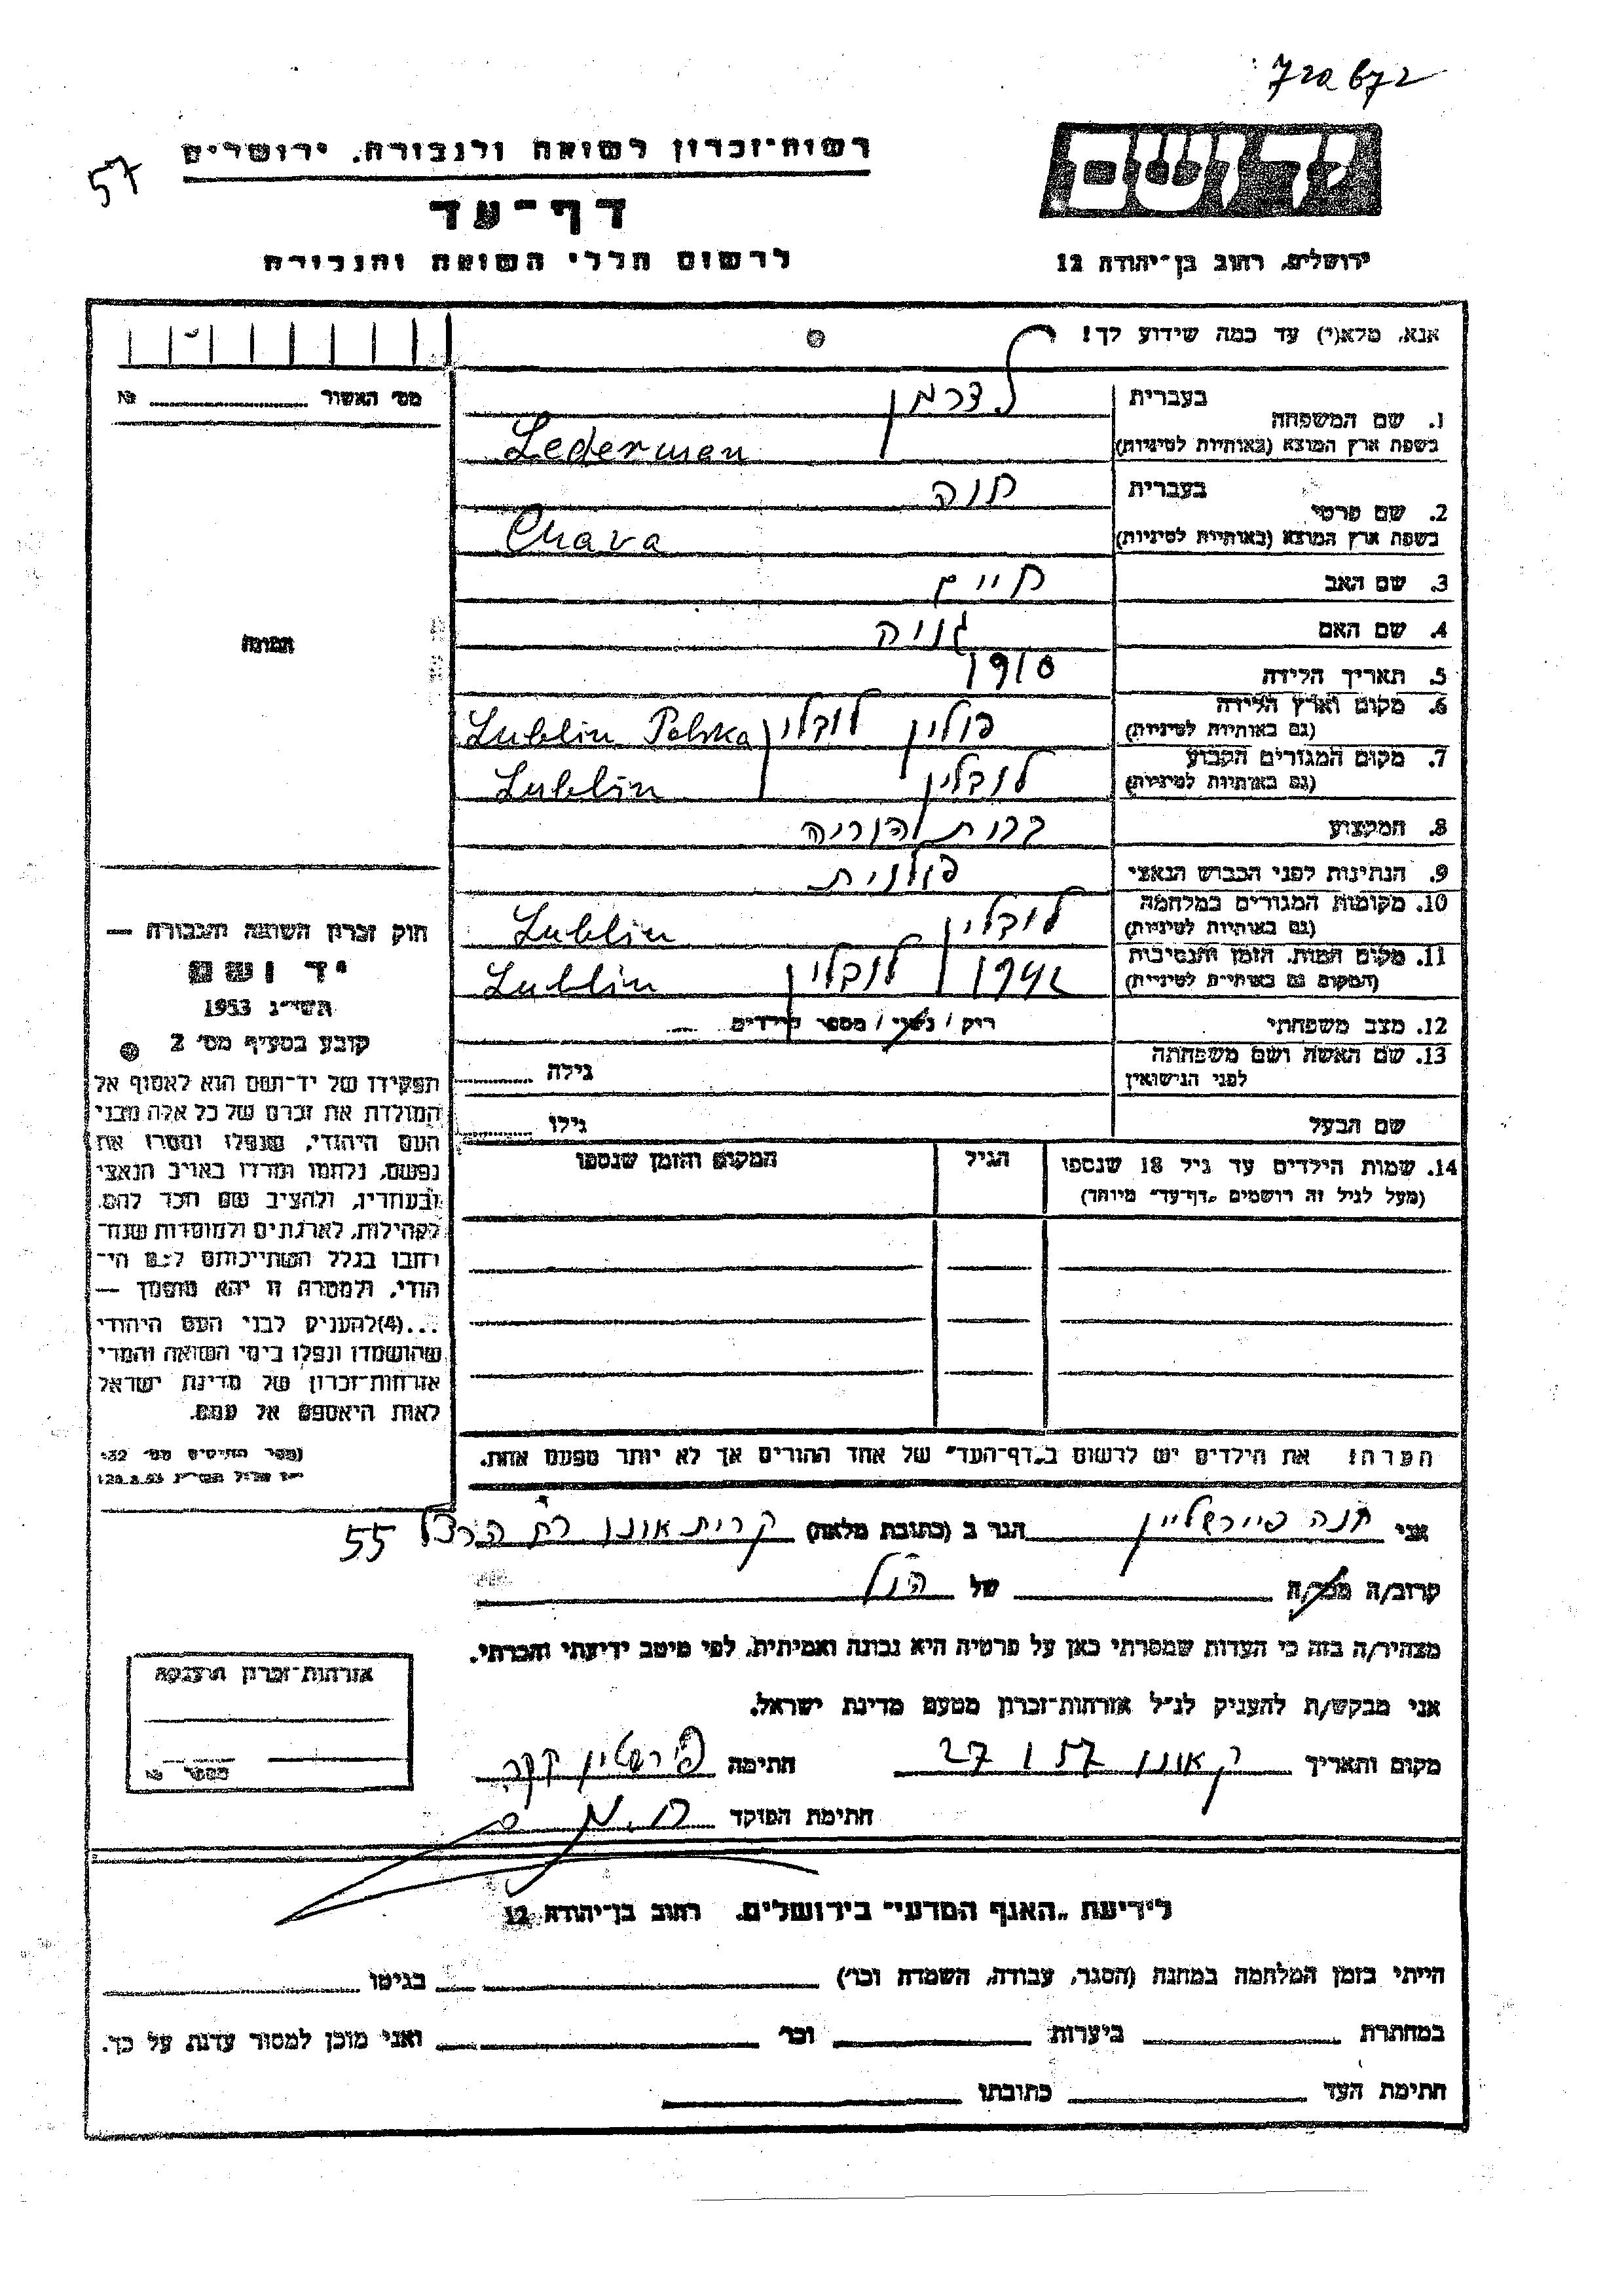 720672
57
רשות־זכרון לשואה ולגבורה, ירושלים
דף־עד
לרשום חללי השואה והגבורה
יד ושם
ירושלים, רחוב בן־יהודה 12
אנא, מלא(י) עד כמה שידוע לך!
מס׳ האשור № 
1. שם המשפחה בעברית לדרמן
בשפת ארץ המוצא (באותיות לטיניות) Lederman
2. שם פרטי בעברית חוה
בשפת ארץ המוצא (באותיות לטיניות) Chava
3. שם האב חיים
4. שם האם גניה
5. תאריך הלידה 1910
6. מקום וארץ הלידה (גם באותיות לטיניות) פולין לובלין Lublin Polska
7. מקום המגורים הקבוע (גם באותיות לטיניות) לובלין Lublin
8. המקצוע בבית הוריה
9. הנתינות לפני הכבוש הנאצי פולנית
10. מקומות המגורים במלחמה (גם באותיות לטיניות) לובלין Lublin
11. מקום המות, הזמן והנסיבות (המקום גם באותיות לטיניות) 1942 לובלין Lublin
12. מצב משפחתי רווק / נשוי / מספר הילדים
13. שם האשה ושם משפחתה לפני הנישואין גילה
שם הבעל גילו
14. שמות הילדים עד גיל 18 שנספו הגיל המקום והזמן שנספו
(מעל לגיל זה רושמים „דף־עד״ מיוחד)
הערה: את הילדים יש לרשום ב„דף־העד״ של אחד ההורים אך לא יותר מפעם אחת.
התמונה
חוק זכרון השואה והגבורה —
יד ושם
תשי״ג 1953
קובע בסעיף מס׳ 2
תפקידו של יד־ושם הוא לאסוף אל
המולדת את זכרם של כל אלה מבני
העם היהודי, שנפלו ומסרו את
נפשם, נלחמו ומרדו באויב הנאצי
ובעוזריו, ולהציב שם וזכר להם,
לקהילות, לארגונים ולמוסדות שנח־
רבו בגלל השתייכותם לעם הי־
הודי, ולמטרה זו יהא מוסמך —
...(4)להעניק לבני העם היהודי
שהושמדו ונפלו בימי השואה והמרי
אזרחות־זכרון של מדינת ישראל
לאות היאספם אל עמם.
(ספר החוקים מס׳ 132
אני חנה פיירשטיין הגר ב (כתובת מלאה) קרית אונו רח הרצל 55
קרוב/ה מכר/ה של הנ״ל
מצהיר/ה בזה כי העדות שמסרתי כאן על פרטיה היא נכונה ואמיתית, לפי מיטב ידיעתי והכרתי.
אני מבקש/ת להעניק לנ״ל אזרחות־זכרון מטעם מדינת ישראל.
מקום ותאריך ק אונו 27 I 57 חתימה
חתימת הפוקד
אזרחות־זכרון הוענקה
מספר №
לידיעת „האגף המדעי״ בירושלים, רחוב בן־יהודה 12
הייתי בזמן המלחמה במחנה (הסגר, עבודה, השמדה וכו׳) בגיטו
במחתרת ביערות וכו׳ ואני מוכן למסור עדות על כך.
חתימת העד כתובתו